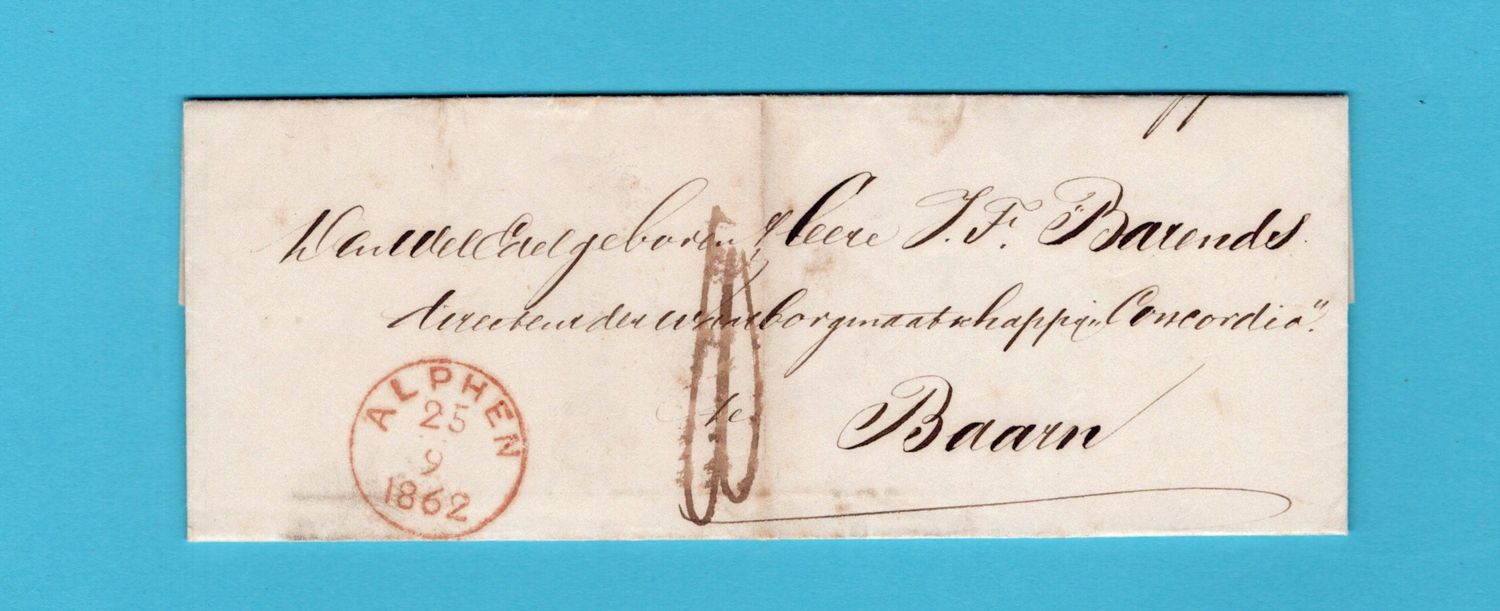 Den WelEdelgeboren Heere J. F. Barends.
directeur der waarborgmaatschappij "Concordia".
te
Baarn
ALPHEN
25
9
1862